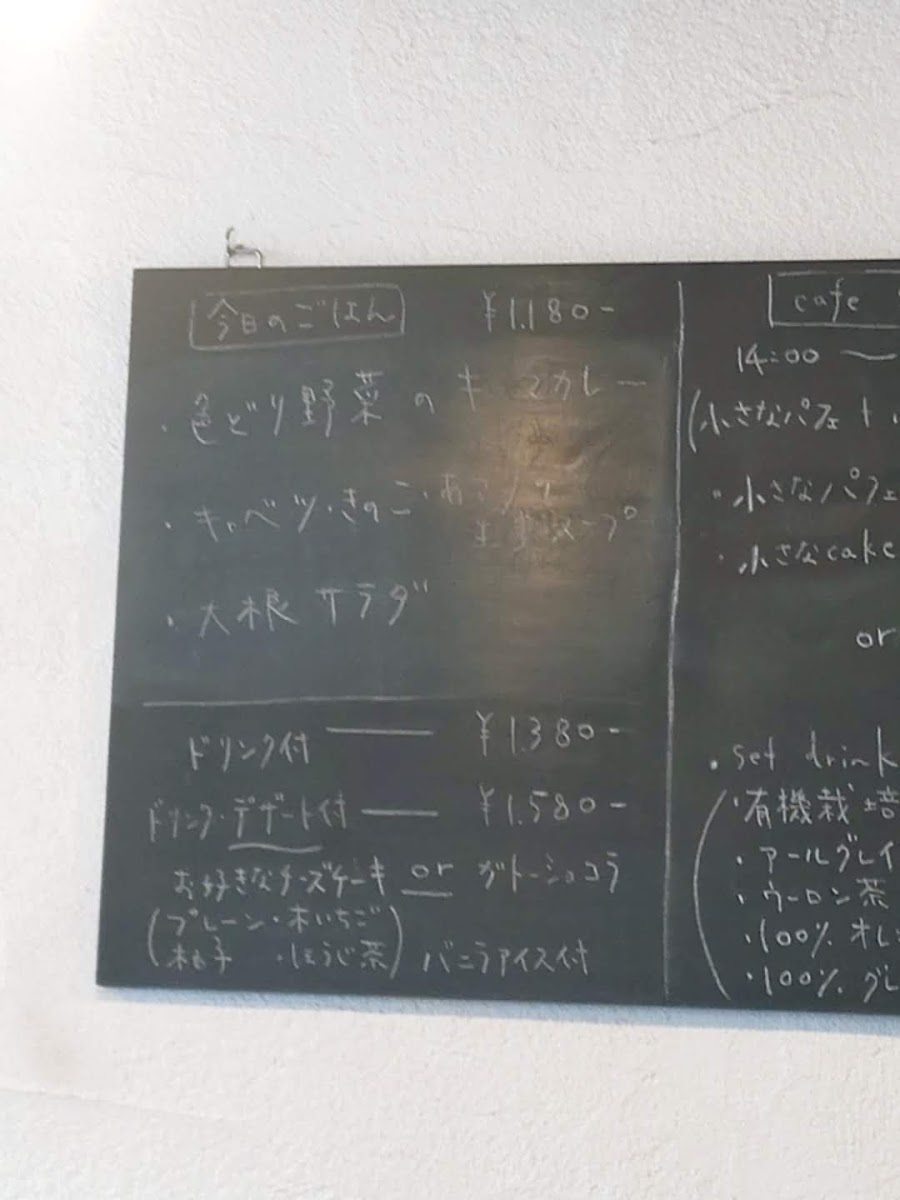 今日のごはん ¥1.180-
・色どり野菜のキーマカレー
・キャベツ・きのこ・
スープ
・大根サラダ
ドリンク付 ¥1.380-
ドリンク・デザート付 ¥1.580-
お好きなチーズケーキ or ガトーショコラ
(プレーン・木いちご
桃子 ・ほうじ茶) バニラアイス付
cafe
14:00 〜
(小さなパフェ
・小さなパフェ
・小さなcake
or
・set drink
(・有機栽培
・アールグレイ
・ウーロン茶
・100% オレ
・100% グレ